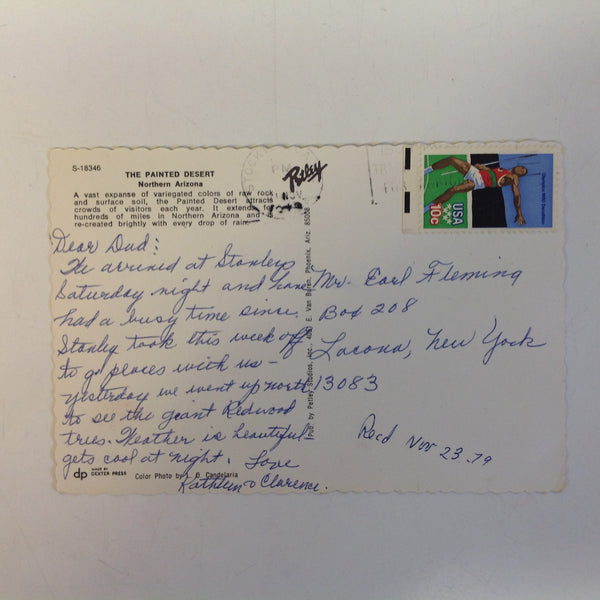 S-18346
THE PAINTED DESERT
Northern Arizona
A vast expanse of variegated colors of raw rock
and surface soil, the Painted Desert attracts
crowds of visitors each year. It extends for
hundreds of miles in Northern Arizona and
re-created brightly with every drop of rain.
Dear Dad:
We arrived at Stanleys
Saturday night and have
had a busy time since.
Stanley took this week off
to go places with us -
yesterday we went up north
to see the giant Redwood
trees. Weather is beautiful
gets cool at night. Love
Kathleen & Clarence.
dp
MADE BY
DEXTER PRESS
Color Photo by L. D. Candelaria
Petley
PUB. by Petley Studios, Inc. E. Van Buren, Phoenix, Ariz.
PM
USA
10c
Olympics 1980 Decathlon
Mr. Earl Fleming
Box 208
Lacona, New York
13083
Recd Nov 23. 79